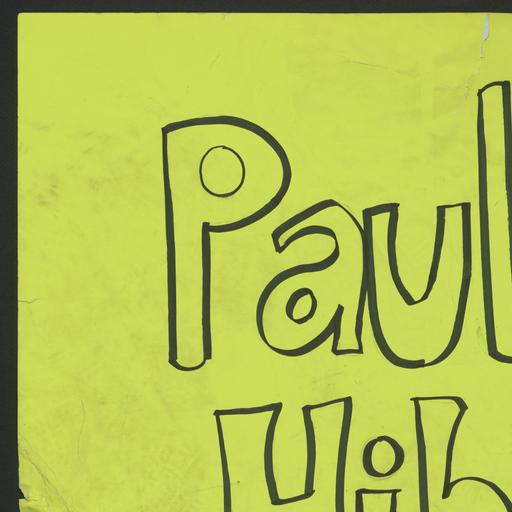 Paul
Hib